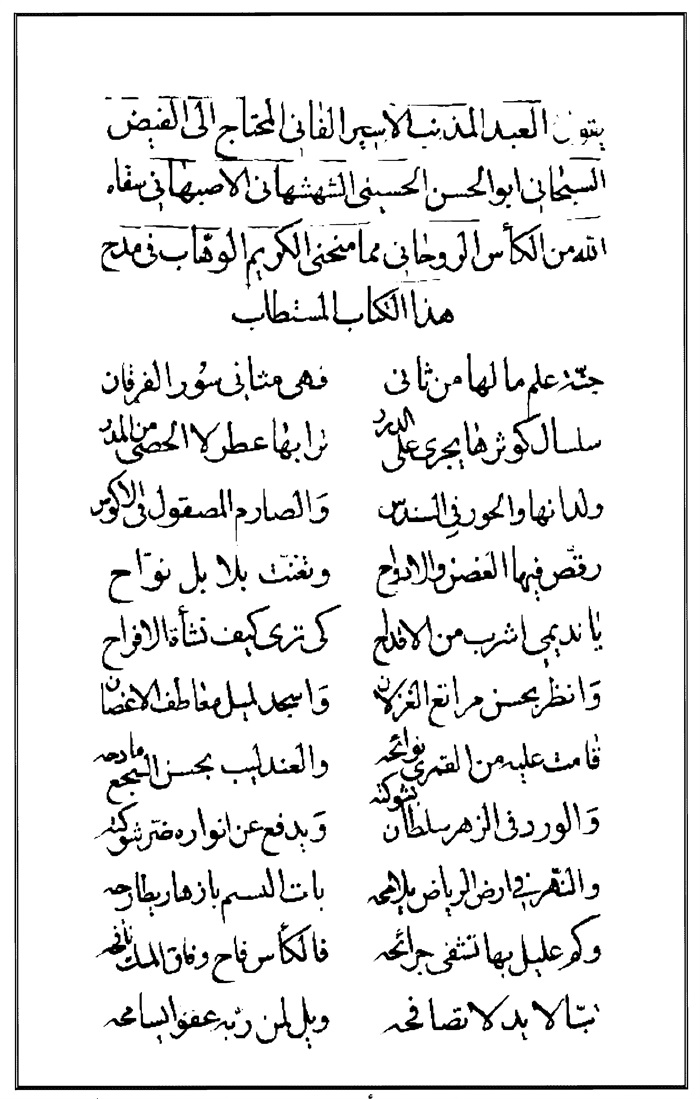 يقول العبد المذنب الاسير الفاني المحتاج الى الفيض
السبحاني ابو الحسن الحسيني الشهشهاني الاصبهاني سقاه
الله من الكأس الروحاني مما منحني الكريم الوهّاب في مدح
هذا الكتاب المستطاب
جنّة علم ما لها من ثاني فهي مثاني سُور الفرقان
سلسال كوثرها يجرى على الدرد ترابها عطر لا الحصى من المدد
ولدانها والحور في السندس وَالصارم المصقول في الاكوس
رقّص فيها الغصن والادواح وتغنّت بلابل نوّاح
يا نديمي اشرب من الاقداح كى ترى كيف نشأة الافراح
وَانظر بحسن مراتع الغزلان وَاسجد لميل معاطف الاغصان
قامت عليه من القمرى نوائحه والعندليب بحسن السجع مادحه
وَالورد في الزهر سلطان بشوكته وَيدفع عن انواره ضرّ شوكته
والنّهر في ارض الرياض يلامحه بات النسيم بازهار يطارحه
وكم عليل بها تشفى جرائحه فالكأس فاح وفاق المسك نافحه
تبّا لا يد لا تصافحه ويل لمن ربّه عفوا يسامحه